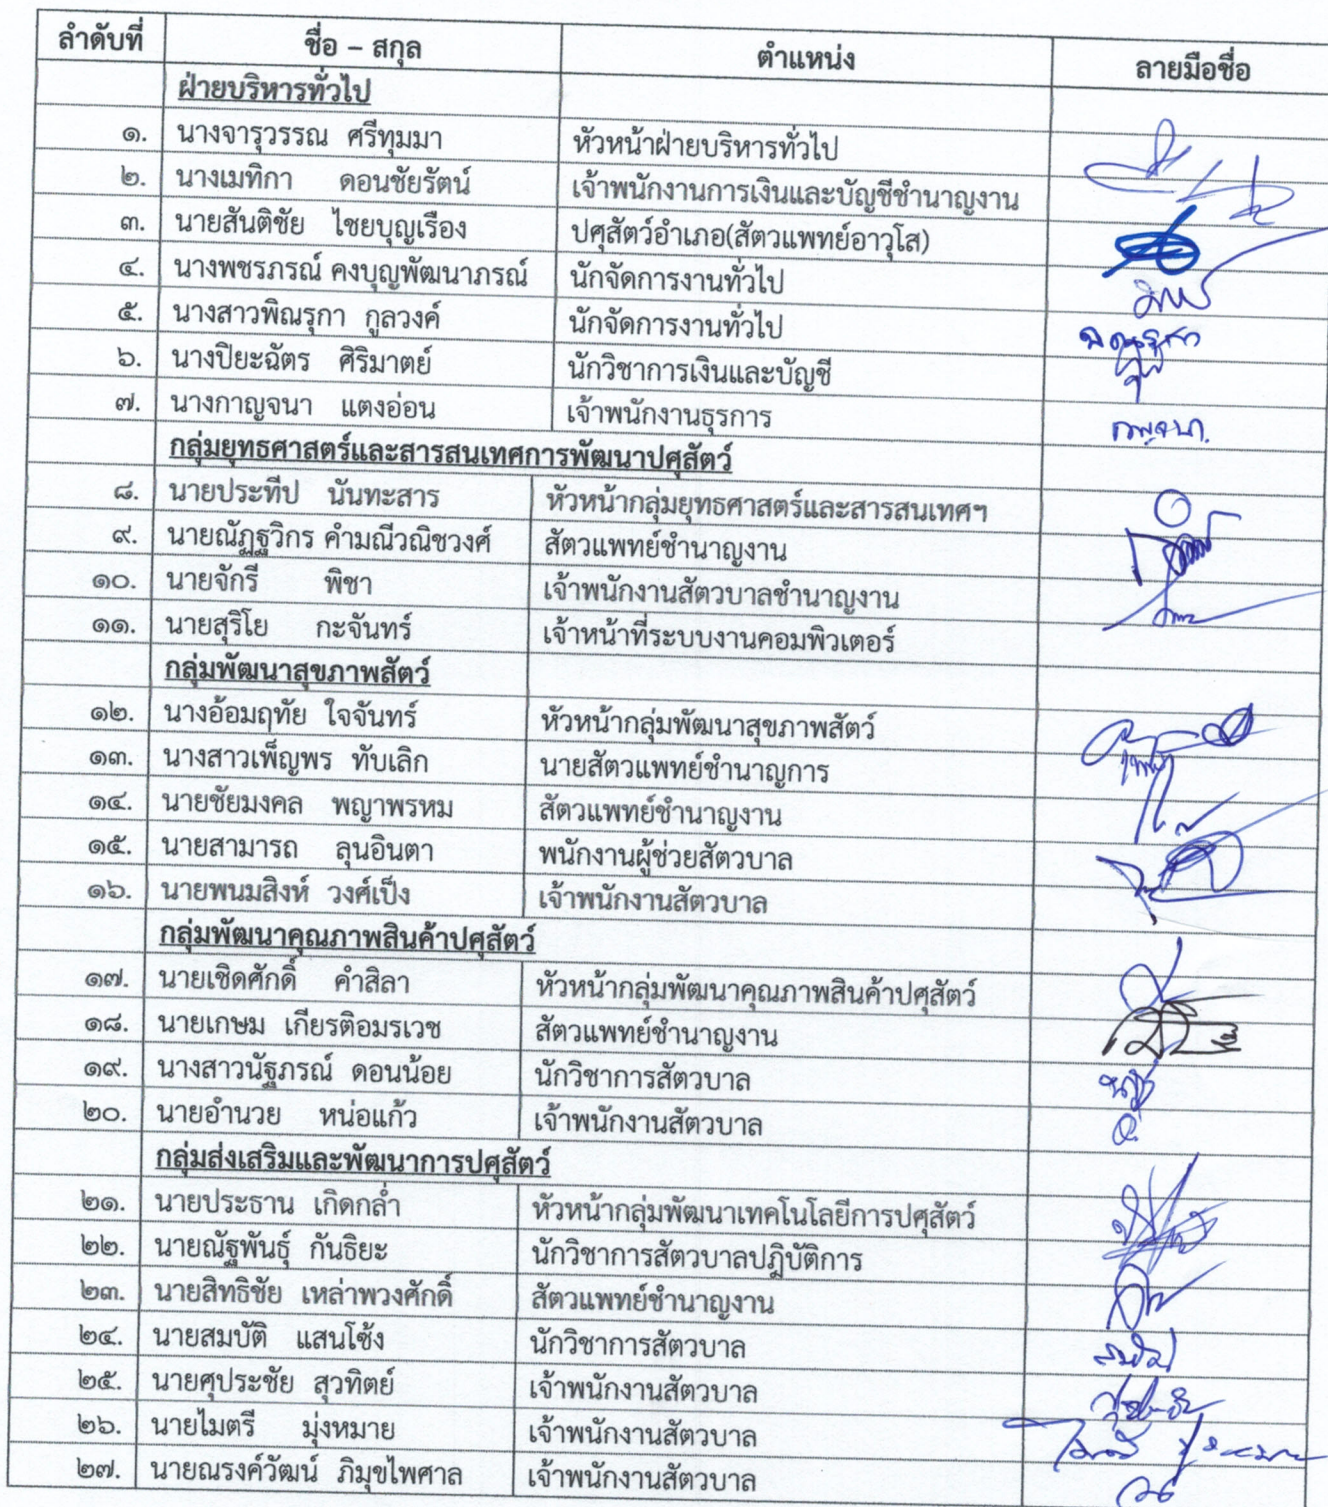 ลำดับที่ ชื่อ – สกุล ตำแหน่ง ลายมือชื่อ
ฝ่ายบริหารทั่วไป
๑. นางจารุวรรณ ศรีทุมมา หัวหน้าฝ่ายบริหารทั่วไป
๒. นางเมทิกา ดอนชัยรัตน์ เจ้าพนักงานการเงินและบัญชีชำนาญงาน
๓. นายสันติชัย ไชยบุญเรือง ปศุสัตว์อำเภอ(สัตวแพทย์อาวุโส)
๔. นางพชรภรณ์ คงบุญพัฒนาภรณ์ นักจัดการงานทั่วไป
๕. นางสาวพิณรุกา กูลวงค์ นักจัดการงานทั่วไป
๖. นางปิยะฉัตร ศิริมาตย์ นักวิชาการเงินและบัญชี
๗. นางกาญจนา แตงอ่อน เจ้าพนักงานธุรการ กาญจนา.
กลุ่มยุทธศาสตร์และสารสนเทศการพัฒนาปศุสัตว์
๘. นายประทีป นันทะสาร หัวหน้ากลุ่มยุทธศาสตร์และสารสนเทศฯ
๙. นายณัฏฐวิกร คำมณีวณิชวงศ์ สัตวแพทย์ชำนาญงาน
๑๐. นายจักรี พิชา เจ้าพนักงานสัตวบาลชำนาญงาน
๑๑. นายสุริโย กะจันทร์ เจ้าหน้าที่ระบบงานคอมพิวเตอร์
กลุ่มพัฒนาสุขภาพสัตว์
๑๒. นางอ้อมฤทัย ใจจันทร์ หัวหน้ากลุ่มพัฒนาสุขภาพสัตว์
๑๓. นางสาวเพ็ญพร ทับเลิก นายสัตวแพทย์ชำนาญการ
๑๔. นายชัยมงคล พญาพรหม สัตวแพทย์ชำนาญงาน
๑๕. นายสามารถ ลุนอินตา พนักงานผู้ช่วยสัตวบาล
๑๖. นายพนมสิงห์ วงศ์เป็ง เจ้าพนักงานสัตวบาล
กลุ่มพัฒนาคุณภาพสินค้าปศุสัตว์
๑๗. นายเชิดศักดิ์ คำสิลา หัวหน้ากลุ่มพัฒนาคุณภาพสินค้าปศุสัตว์
๑๘. นายเกษม เกียรติอมรเวช สัตวแพทย์ชำนาญงาน
๑๙. นางสาวนัฐภรณ์ ดอนน้อย นักวิชาการสัตวบาล
๒๐. นายอำนวย หน่อแก้ว เจ้าพนักงานสัตวบาล
กลุ่มส่งเสริมและพัฒนาการปศุสัตว์
๒๑. นายประธาน เกิดกล่ำ หัวหน้ากลุ่มพัฒนาเทคโนโลยีการปศุสัตว์
๒๒. นายณัฐพันธุ์ กันธิยะ นักวิชาการสัตวบาลปฏิบัติการ
๒๓. นายสิทธิชัย เหล่าพวงศักดิ์ สัตวแพทย์ชำนาญงาน
๒๔. นายสมบัติ แสนโซ้ง นักวิชาการสัตวบาล
๒๕. นายศุประชัย สุวทิตย์ เจ้าพนักงานสัตวบาล
๒๖. นายไมตรี มุ่งหมาย เจ้าพนักงานสัตวบาล
๒๗. นายณรงค์วัฒน์ ภิมุขไพศาล เจ้าพนักงานสัตวบาล